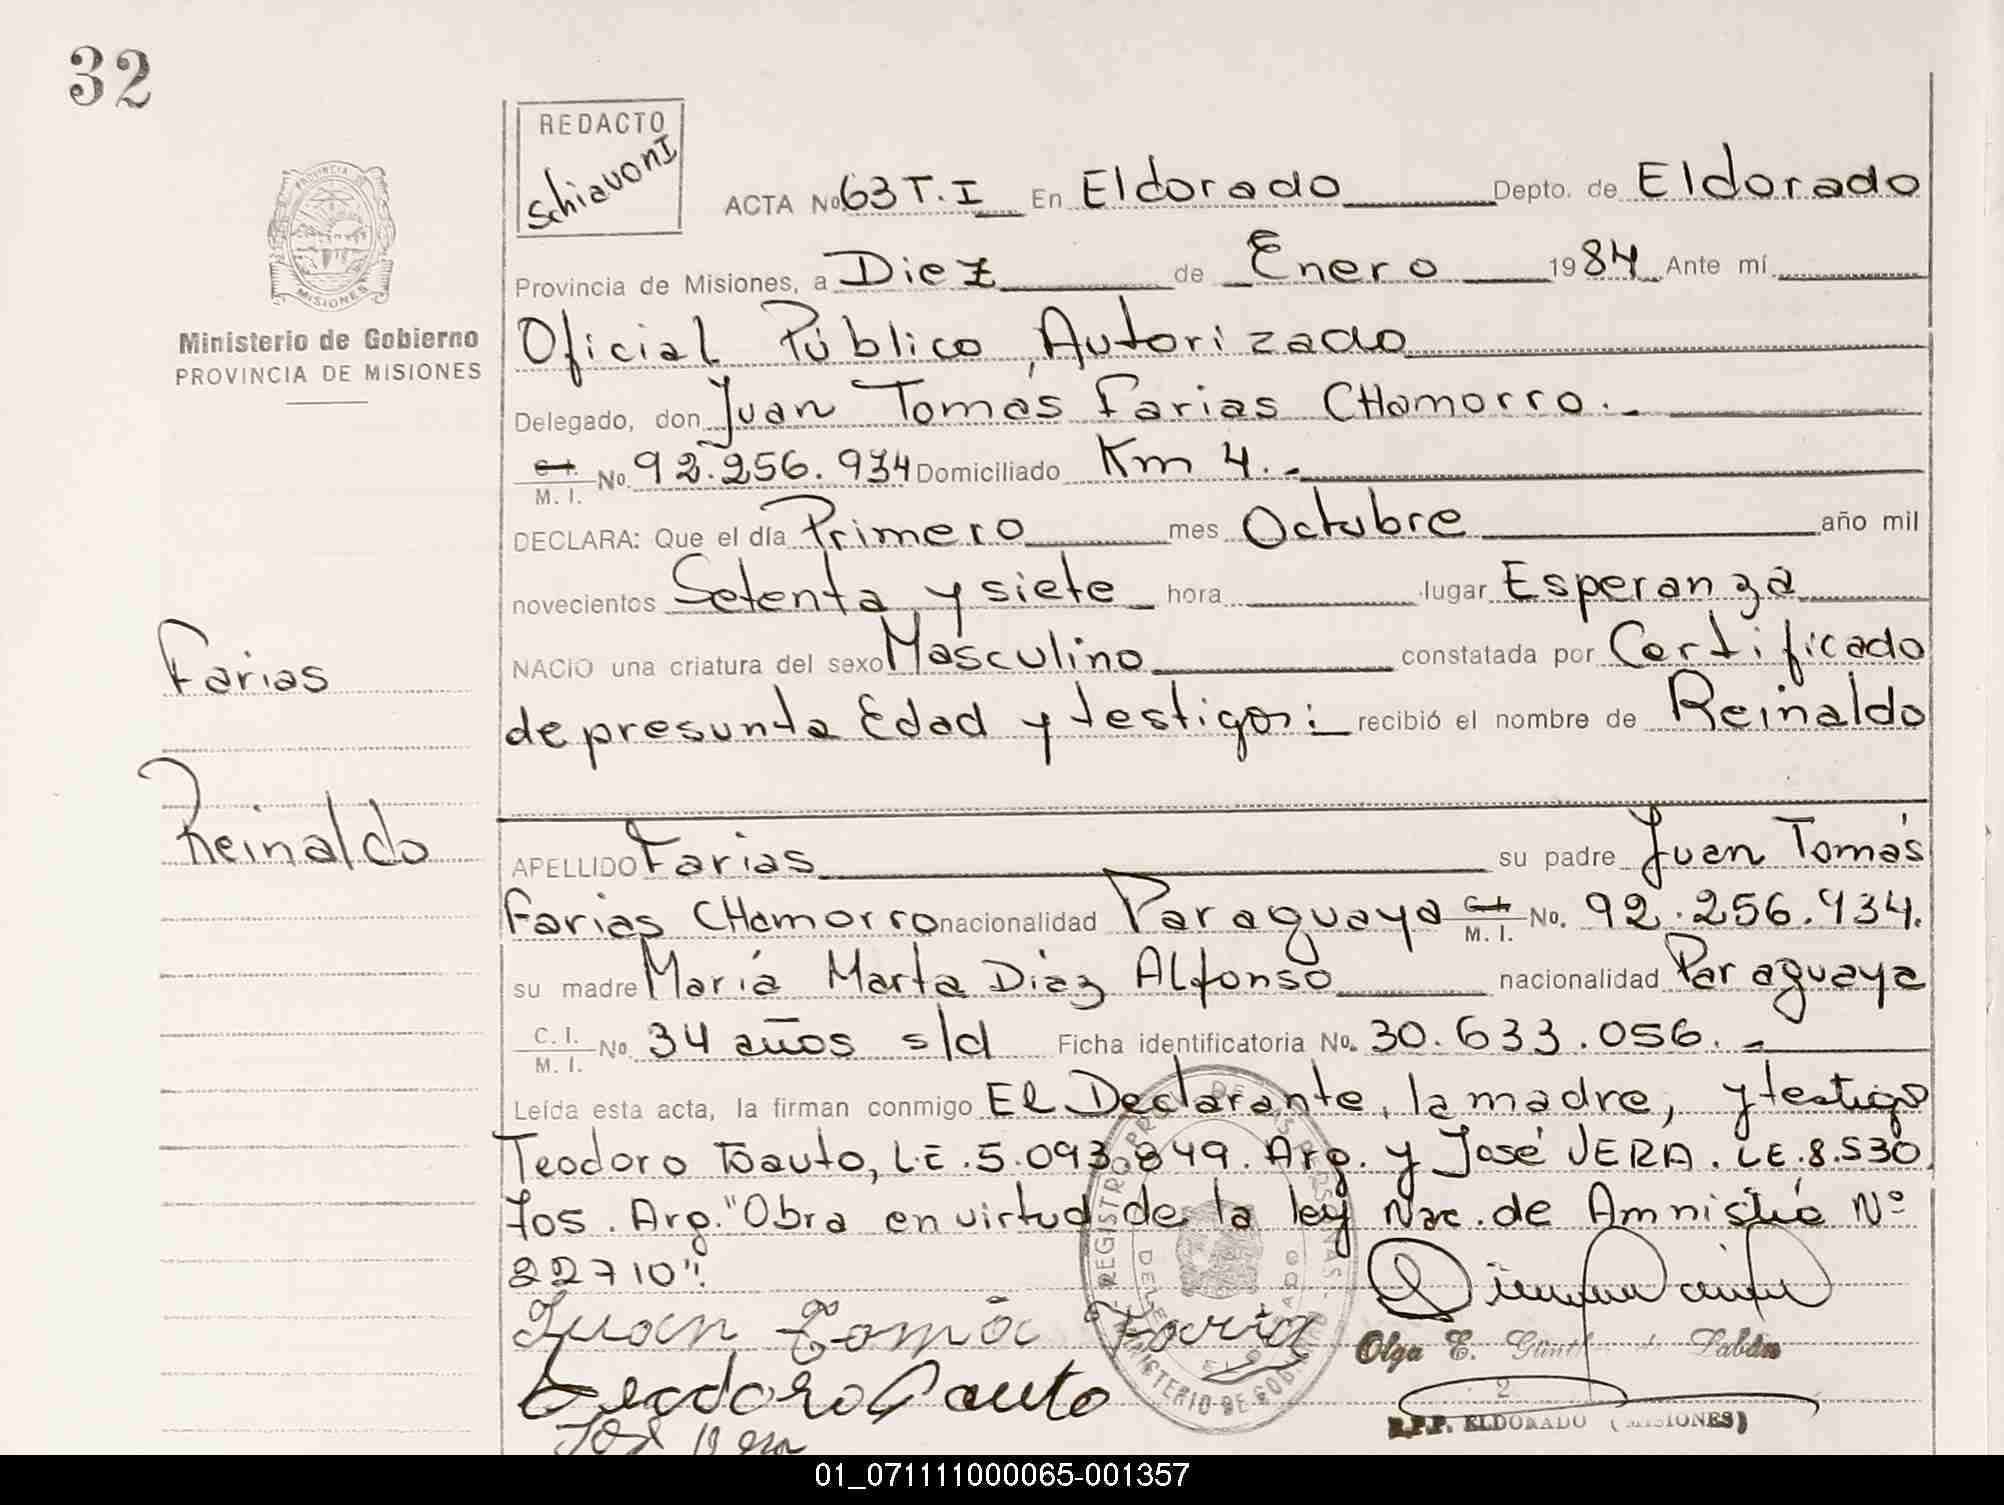 32
REDACTO
Schiavoni
PROVINCIA DE
MISIONES
Ministerio de Gobierno
PROVINCIA DE MISIONES
ACTA No 63 T.I En Eldorado Depto. de Eldorado
Provincia de Misiones, a Diez de Enero 1984 Ante mí
Oficial Público, Autorizado
Delegado, don Juan Tomás Farias CHamorro.-
C. I. M. I. No. 92.256.934 Domiciliado Km 4.-
DECLARA: Que el día Primero mes Octubre año mil
novecientos Setenta y siete hora lugar Esperanza
NACIO una criatura del sexo Masculino constatada por Certificado
de presunta Edad y testigos: recibió el nombre de Reinaldo
Farias
Reinaldo
APELLIDO Farias su padre Juan Tomás
Farias CHamorro nacionalidad Paraguaya C. I. M. I. No. 92.256.934.
su madre María Marta Diaz Alfonso nacionalidad Paraguaya
C. I. M. I. No. 34 años s/d Ficha identificatoria No. 30.633.056.-
Leída esta acta, la firman conmigo El Declarante, la madre, y testigo
Teodoro Souto, L.E. 5.093.849. Arg. y José VERA. L.E. 8.530.
705. Arg. "Obra en virtud de la ley Nac. de Amnistía Nº
22710".
Juan Tomá Faria
Teodoro Souto
José Vera
Olga E. Günther de Labán
R.P.P. ELDORADO (MISIONES)
01_071111000065-001357